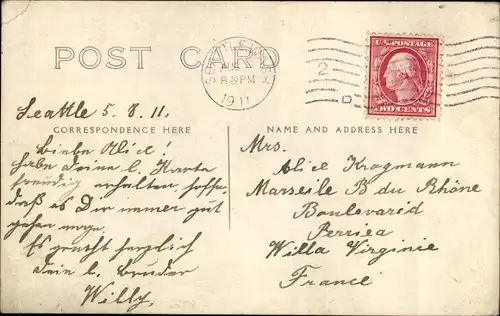 POST CARD
SEATTLE, WASH.
AUG
8-30PM
1911
2
D
U.S. POSTAGE
TWO CENTS
Seattle 5. 8. 11.
CORRESPONDENCE HERE
Liebe Alice!
habe deine l. Karte
freudig erhalten, hoffe
daß es Dir immer gut
gehen möge.
Es grüßt herzlich
dein l. Bruder
Willy.
NAME AND ADDRESS HERE
Mrs.
Alice Kragmann
Marseile B du Rhône
Boulevarid
Perriea
Willa Virginie
France